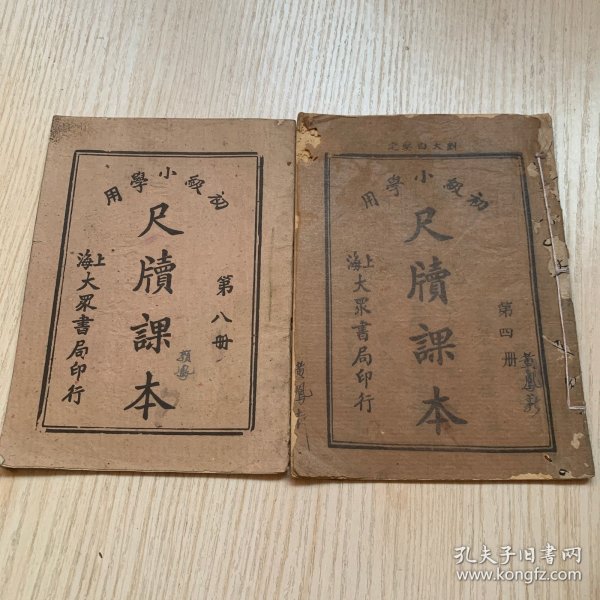 初級小學用
尺牘課本
第八册
上海大眾書局印行
劉大白鑒定
初級小學用
尺牘課本
第四册
上海大眾書局印行
黃鳳
孔夫子旧书网
www.kongfz.com